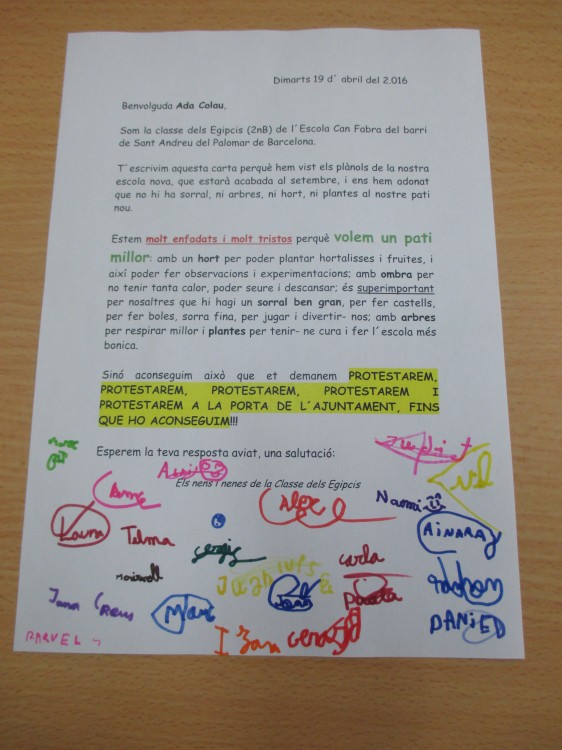 Dimarts 19 d´ abril del 2.016
Benvolguda Ada Colau,
Som la classe dels Egipcis (2nB) de l´Escola Can Fabra del barri
de Sant Andreu del Palomar de Barcelona.
T´escrivim aquesta carta perquè hem vist els plànols de la nostra
escola nova, que estarà acabada al setembre, i ens hem adonat
que no hi ha sorral, ni arbres, ni hort, ni plantes al nostre pati
nou.
Estem molt enfadats i molt tristos perquè volem un pati
millor: amb un hort per poder plantar hortalisses i fruites, i
així poder fer observacions i experimentacions; amb ombra per
no tenir tanta calor, poder seure i descansar; és superimportant
per nosaltres que hi hagi un sorral ben gran, per fer castells,
per fer boles, sorra fina, per jugar i divertir- nos; amb arbres
per respirar millor i plantes per tenir- ne cura i fer l´escola més
bonica.
Sinó aconseguim això que et demanem PROTESTAREM,
PROTESTAREM, PROTESTAREM, PROTESTAREM I
PROTESTAREM A LA PORTA DE L´AJUNTAMENT, FINS
QUE HO ACONSEGUIM!!!
Esperem la teva resposta aviat, una salutació:
Els nens i nenes de la Classe dels Egipcis
Àlex
Naomi
AINARA
Laura
Telma
sergis
carla
Jana Creus
Marc
Joan
Paula
DANIEL
RAQUEL
Izan